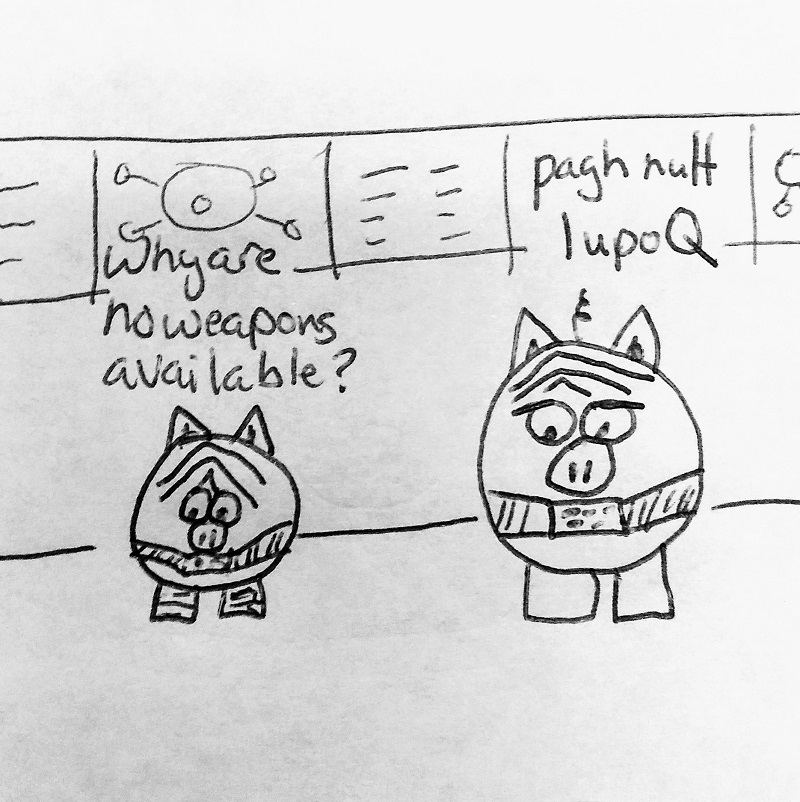 Why are
no weapons
available?
pagh nuH
lupoQ